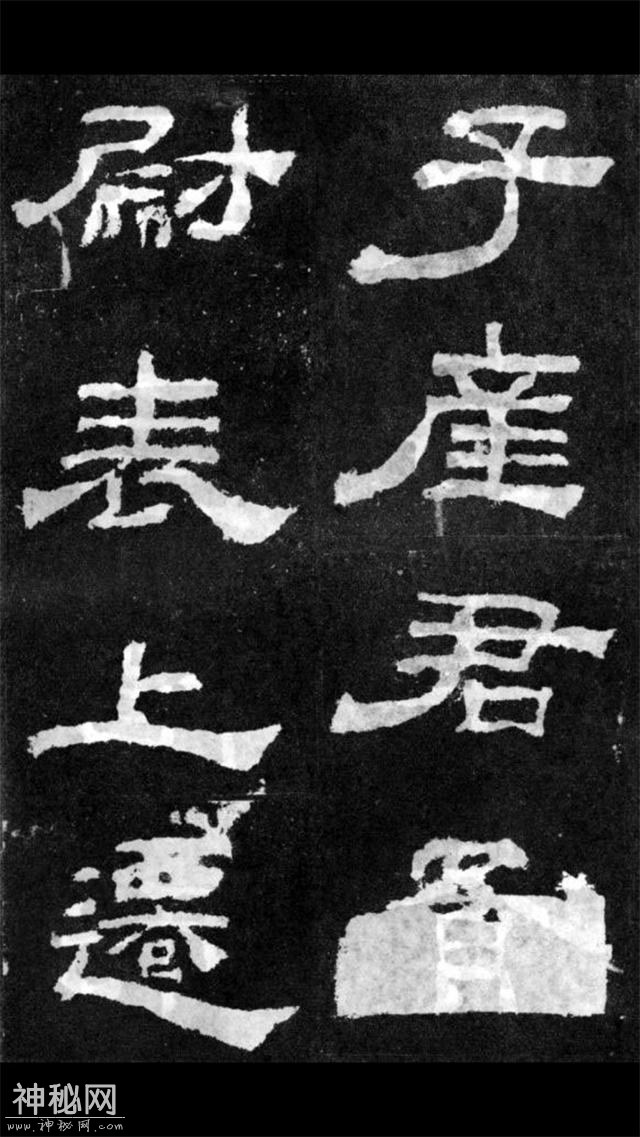 子產君
尉表上遷
神秘网
www.神秘网.com